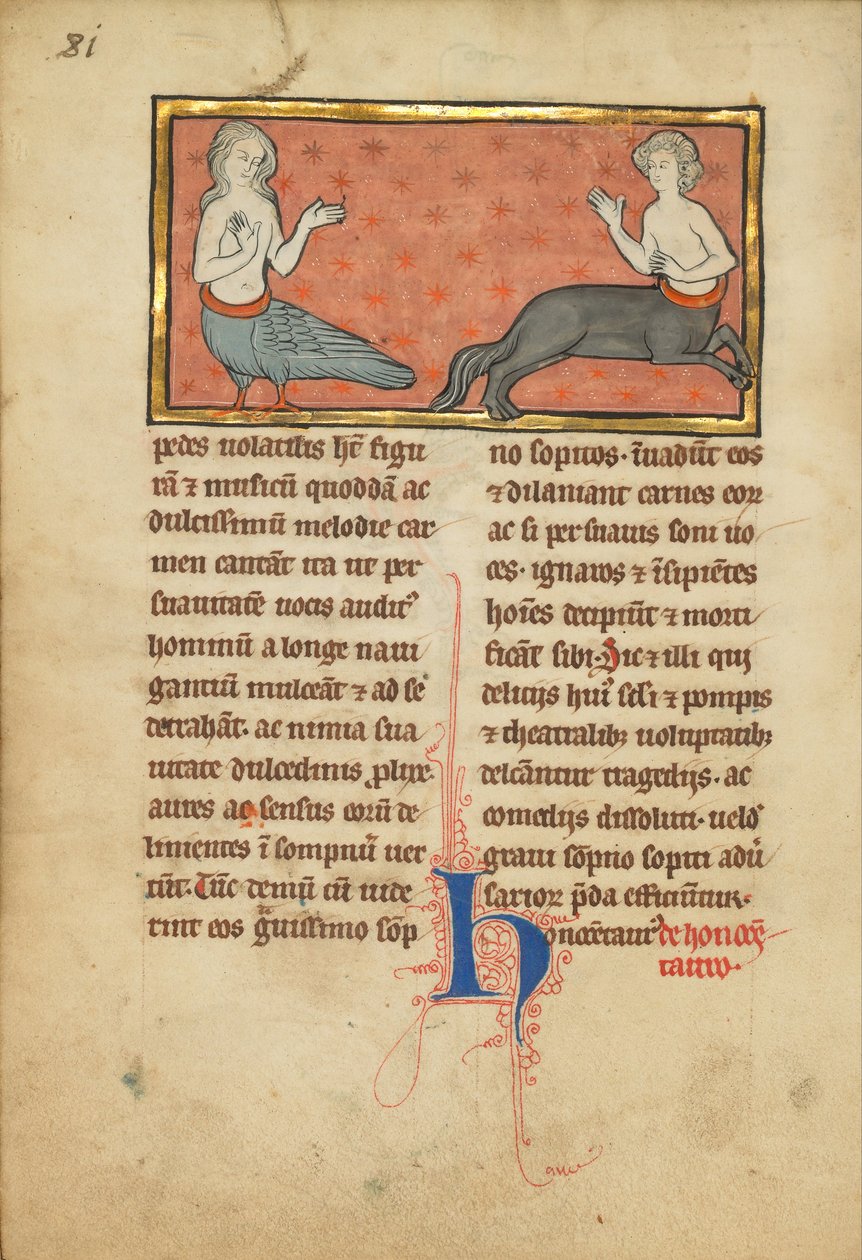 8i
pedes uolatilis hn̄t figu
rā ⁊ musicū quoddā ac
dulcissimū melodie car
men cantāt ita ut per
suauitatē uocis auditꝰ
hominū a longe naui
gantiū mulceāt ⁊ ad se
detrahāt. ac nimia sua
uitate dulcedinis ꝓlixe
aures ac sensus eorū de
linientes ī sompnū uer
tūt. Tūc demū cū uide
rint eos gͣuissimo sōp
no sopitos. īuadūt eos
⁊ dilaniant carnes eoꝝ
ac si persuauis soni uo
ces. ignaros ⁊ īsipiētes
hoīes decipiūt ⁊ morti
ficāt sibi. Sic ⁊ illi qui
delicijs huiꝰ sc̄li ⁊ pompis
⁊ theatralibꝫ uoluptatibꝫ
delcāntur tragedijs. ac
comedijs dissoluti. uelꝰ
graui sōpno sopiti adū
sarioꝝ p̄da efficiūntur.
honocētaurꝰ de honocē
tauro.